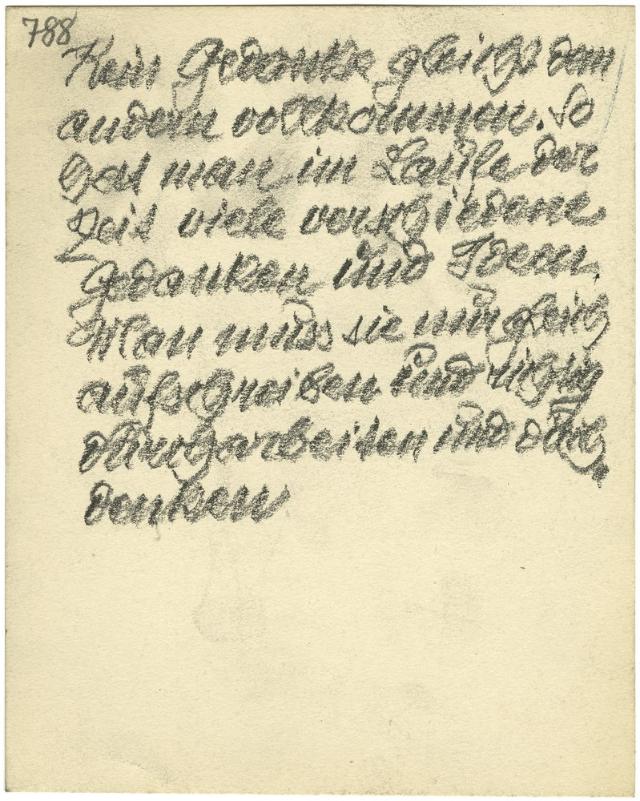 788
Kein Gedanke gleicht dem
andern vollkommen. So
hat man im Laufe der
Zeit viele verschiedene
Gedanken und Ideen.
Man muss sie nur gleich
aufschreiben und richtig
durcharbeiten und durch
denken